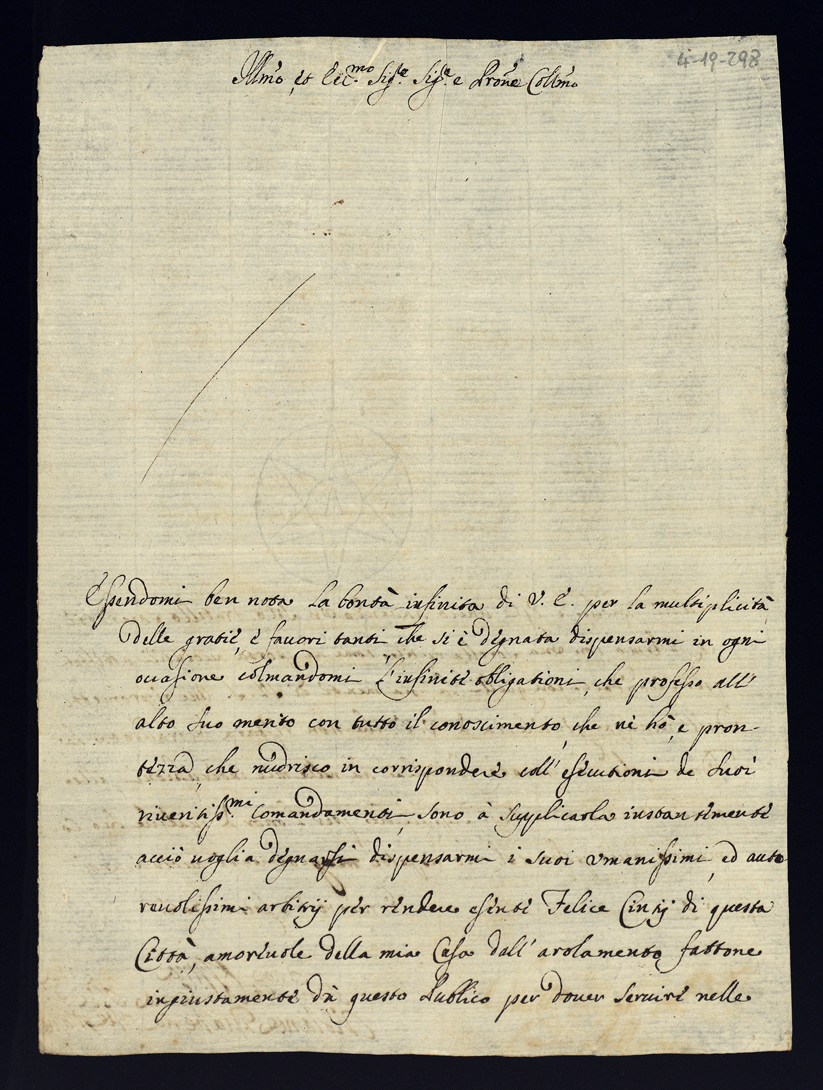 4-19-298
Illmo, et Ecc.mo Sig.re Sig.re e Prone Collmo
Essendomi ben nota la bontà infinita di V. E. per la multiplicità
delle gratie, e favori tanti che si è degnata dispensarmi in ogni
occasione colmandomi l'infinite obligationi, che professo all'
alto suo merito con tutto il conoscimento, che nè hò, e pron-
tezza, che nudrisco in corrispondere coll'esecutioni de suoi
riveritiss.mi comandamenti, sono à supplicarla instantemente
acciò voglia degnarsi dispensarmi i suoi umanissimi, ed auto
revolissimi arbitrij per rendere esente Felice Cintij di questa
Città, amorevole della mia Casa dall'arolamento fattone
ingiustamente dà questo Publico per dover servire nelle